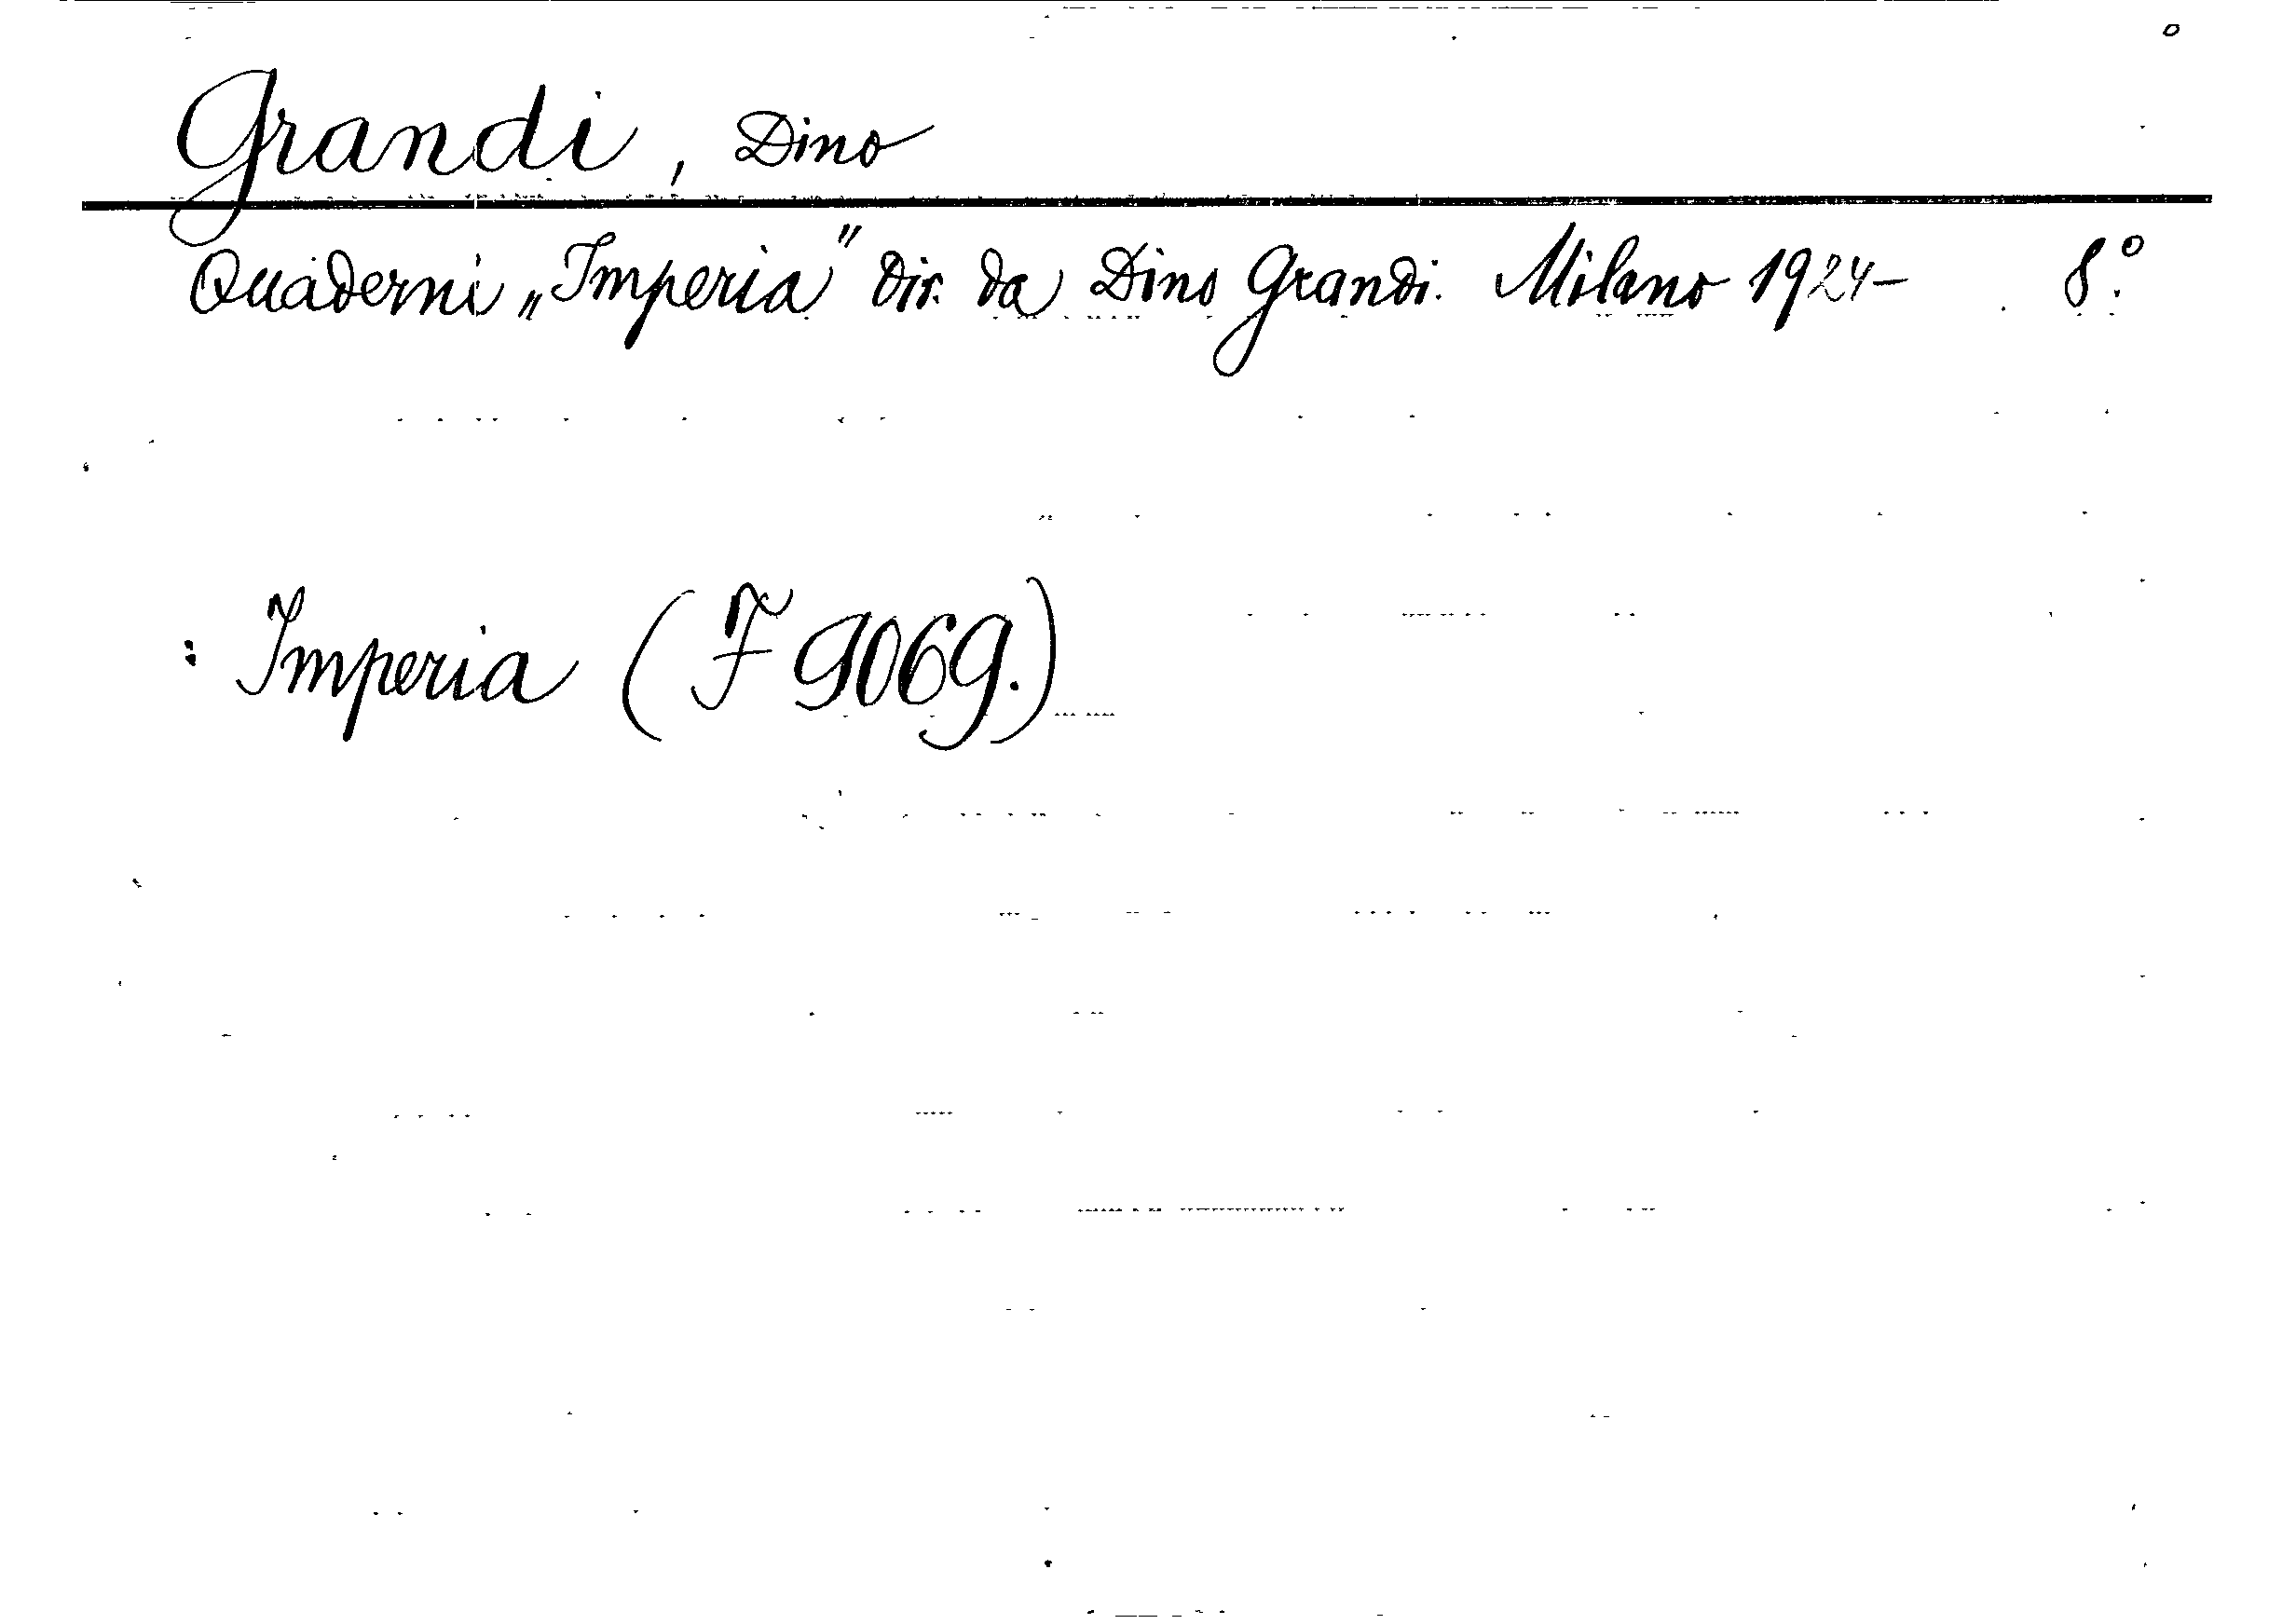 Grandi, Dino
Quaderni „Imperia" Dir. da Dino Grandi. Milano 1924- . 8°.
: Imperia (F 9069.)